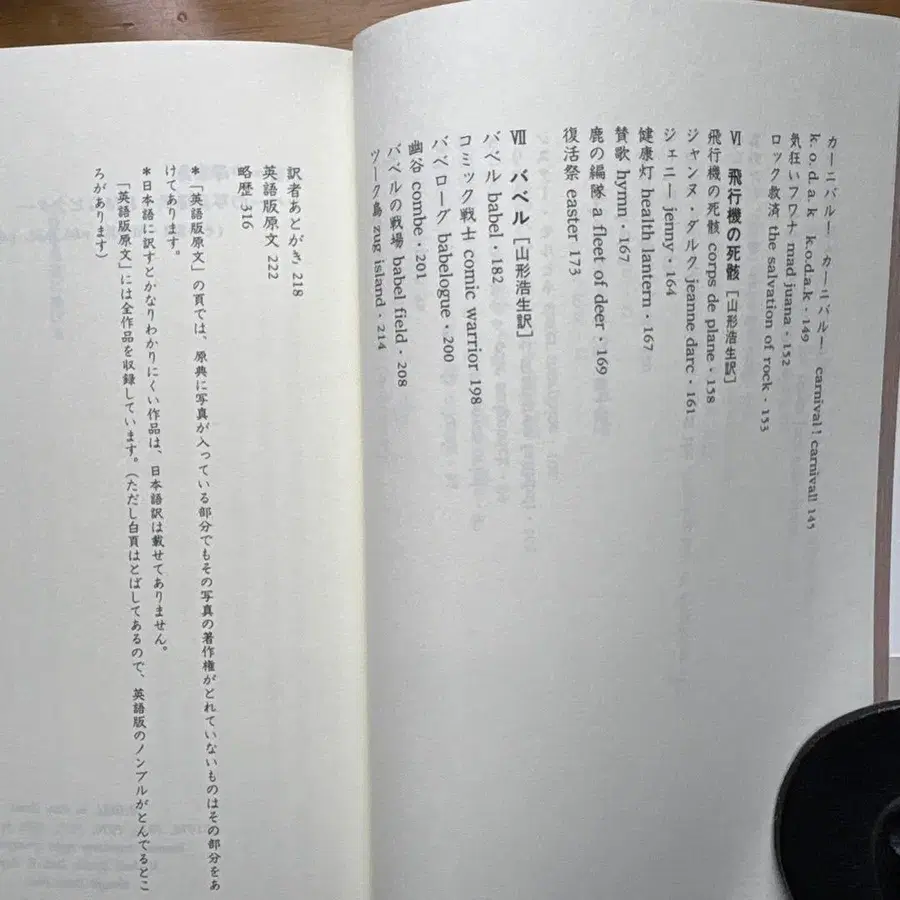 カーニバル！ カーニバル！ carnival! carnival! 145
k.o.d.a.k k.o.d.a.k・149
気狂いフワナ mad juana・152
ロック救済 the salvation of rock・153
VI 飛行機の死骸［山形浩生訳］
飛行機の死骸 corps de plane・158
ジャンヌ・ダルク jeanne darc・161
ジェニー jenny・164
健康灯 health lantern・167
賛歌 hymn・167
鹿の編隊 a fleet of deer・169
復活祭 easter 173
VII バベル［山形浩生訳］
バベル babel・182
コミック戦士 comic warrior 198
バベローグ babelogue・200
幽谷 combe・201
バベルの戦場 babel field・208
ツーク島 zug island・214
訳者あとがき 218
英語版原文 222
略歴 316
＊「英語版原文」の頁では、原典に写真が入っている部分でもその写真の著作権がとれていないものはその部分をあ
けてあります。
＊日本語に訳すとかなりわかりにくい作品は、日本語訳は載せてありません。
「英語版原文」には全作品を収録しています。（ただし白頁はとばしてあるので、英語版のノンブルがとんでるとこ
ろがあります）